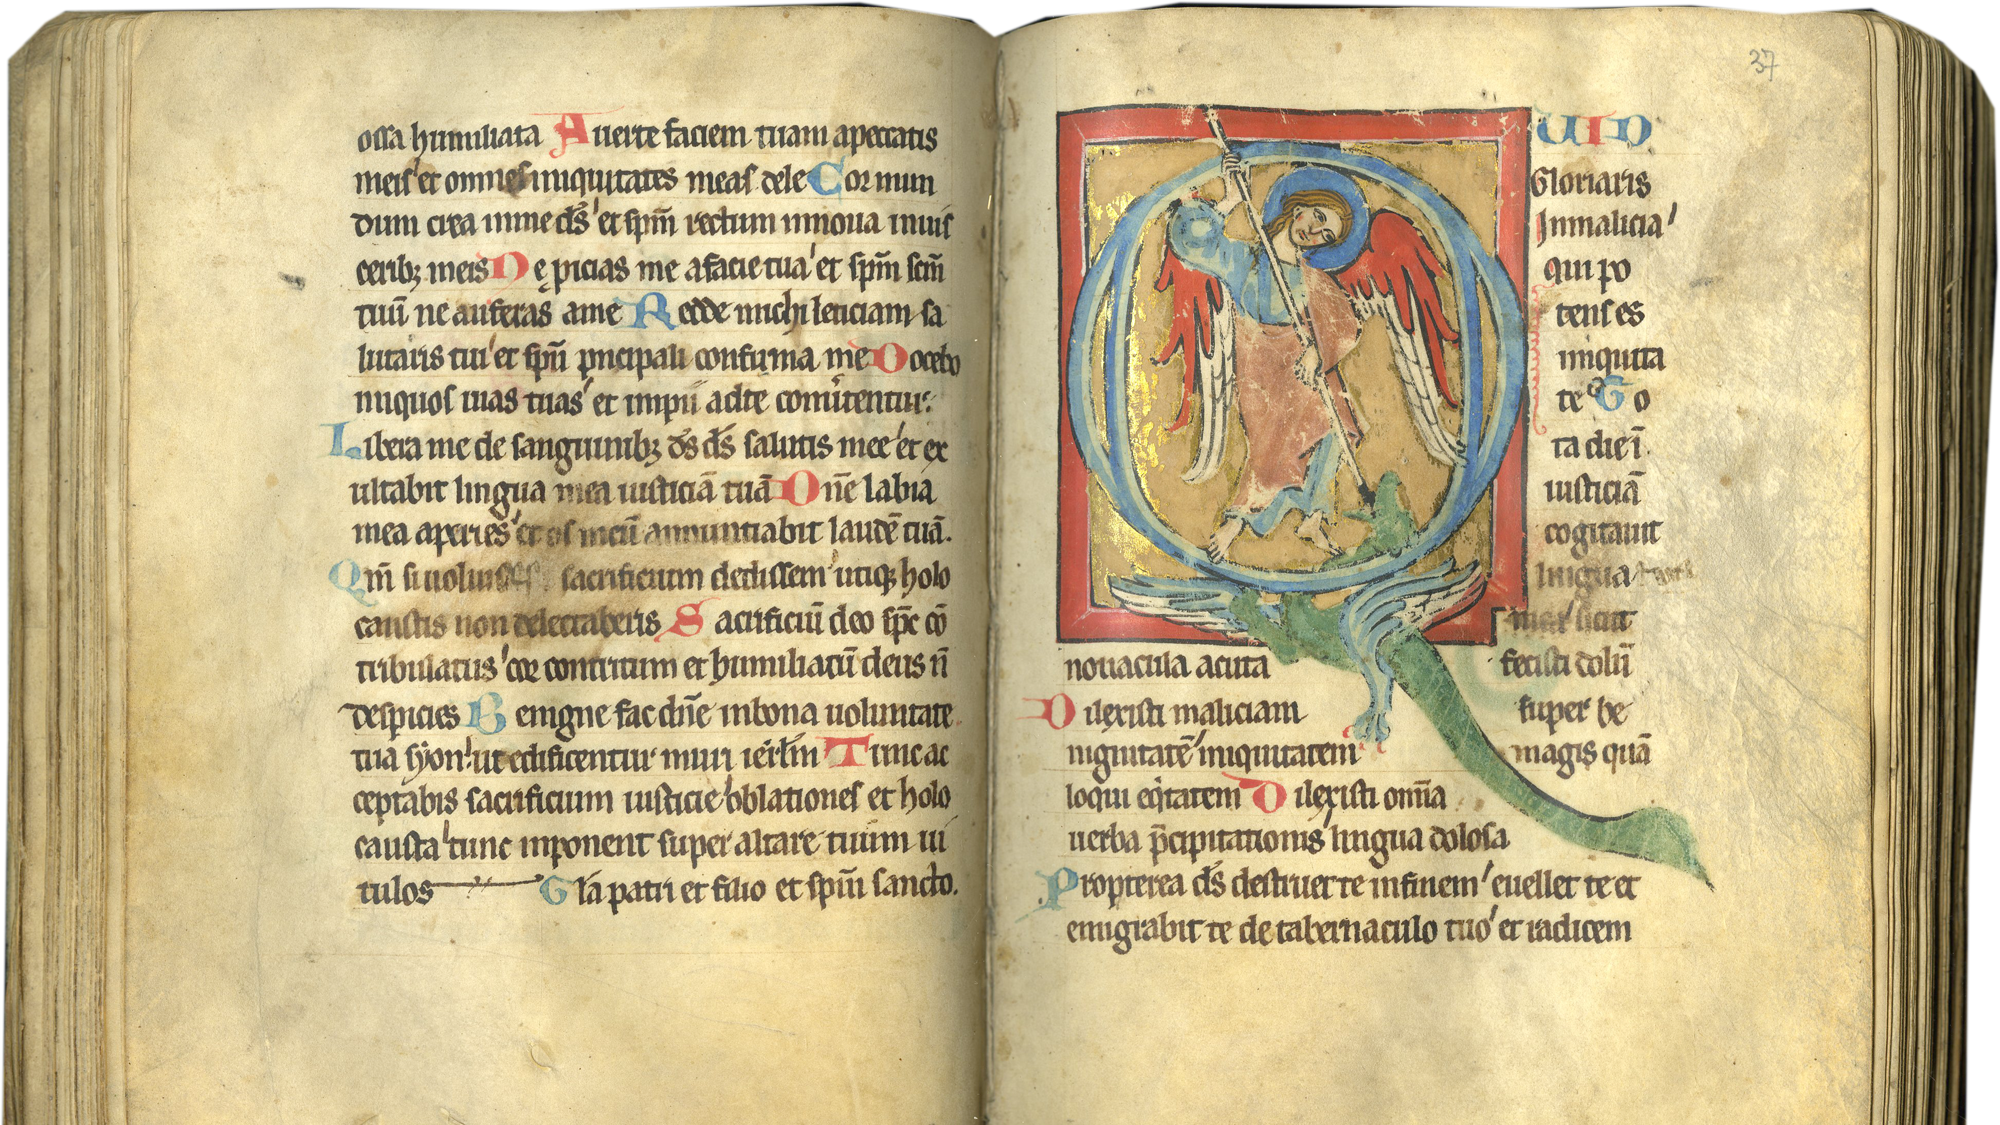 ossa humiliata Auerte faciem tuam apeccatis
meis et omnes iniquitates meas dele Cor mun
dum crea inme ds̄ et spm̄ rectum innoua inuis
ceribꝫ meis Ne ꝓicias me afacie tua et spm̄ scm̄
tuū ne auferas ame Redde michi leticiam sa
lutaris tui et spū pncipali confirma me Docebo
iniquos uias tuas et impii adte conuertentur
Libera me de sanguinibꝫ ds̄ ds̄ salutis mee et ex
ultabit lingua mea iusticiā tuā Dn̄e labia
mea aperies et os meū annuntiabit laudē tuā.
Qm̄ si uoluisses sacrificium dedissem utiqꝫ holo
caustis non delectaberis Sacrificiū deo spc̄ cō
tribulatus cor contritum et humiliatū deus n̄
despicies Benigne fac dn̄e inbona uoluntate
tua syon ut edificentur muri ierlm̄ Tunc ac
ceptabis sacrificium iusticie oblationes et holo
causta tunc inponent super altare tuum ui
tulos Gla patri et filio et spm̄ sancto.
37
QUID
Gloriaris
Inmalicia
qui po
tens es
iniquita
te To
ta die ī
iusticiā
cogitauit
lingua tua
sicut
nouacula acuta fecisti dolū
Dilexisti maliciam super be
nignitatē iniquitatem magis quā
loqui eqitatem Dilexisti om̄ia
uerba p̄cipitationis lingua dolosa
Propterea ds̄ destruet te infinem euellet te et
emigrabit te de tabernaculo tuo et radicem